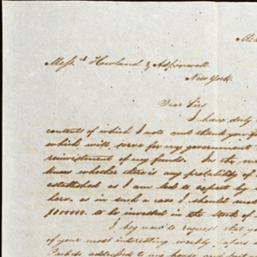 Mess.rs Howland & Aspinwall
New York.
Dear Sirs
I have duly
content of which I note and thank you f
which will serve for my government
reinvestment of my funds. In the me
know whether there is any probability of
established as I am led to expect by
here, as in such a case I should most
to be invested in the stock of
I beg and to request that you
of your most interesting weekly
addressed to my house and